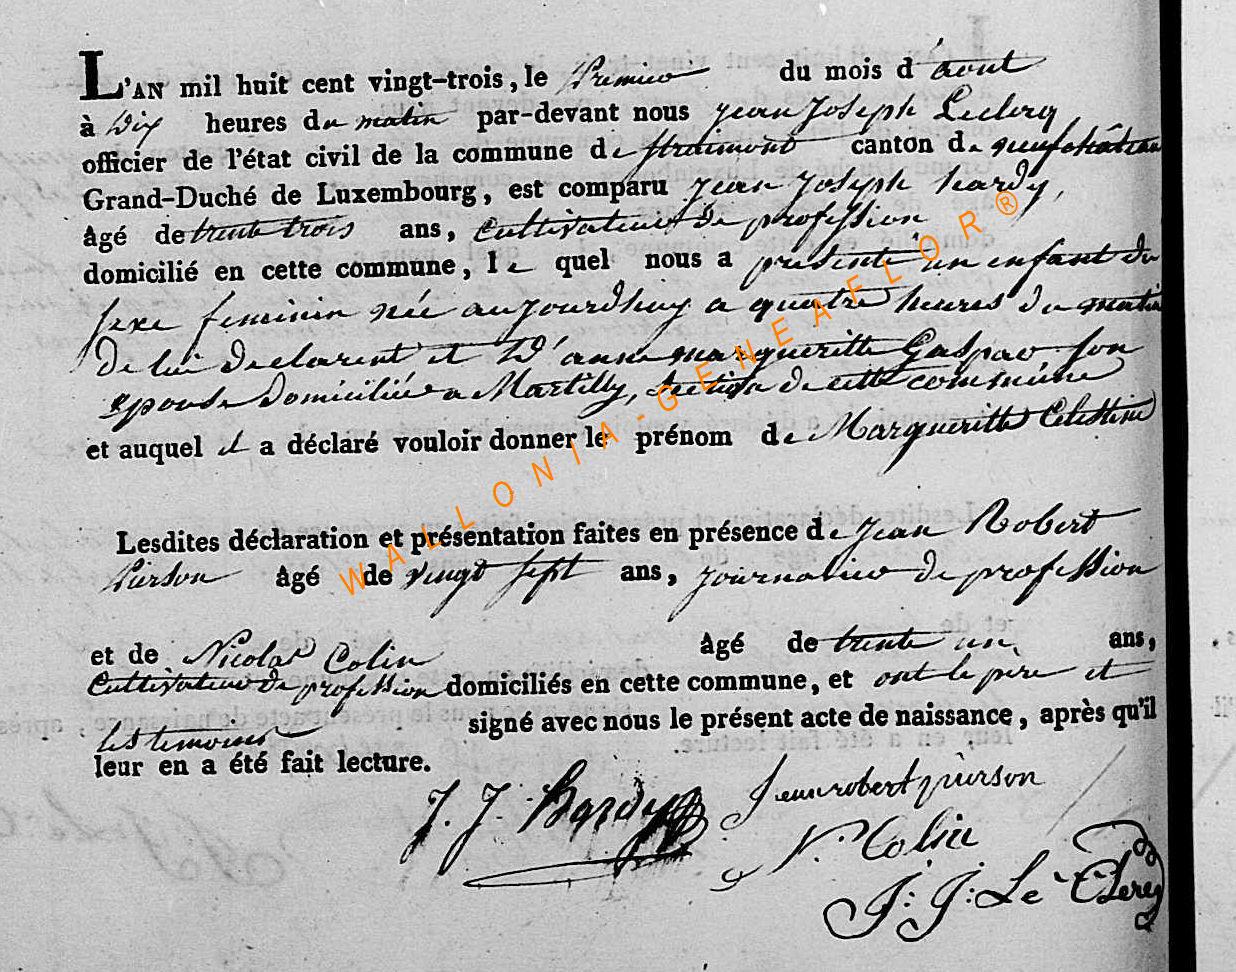 L'AN mil huit cent vingt-trois, le Premier du mois d'aout
à Dix heures du matin par-devant nous Jean Joseph Leclerq
officier de l'état civil de la commune de straimont canton de neufchâteau
Grand-Duché de Luxembourg, est comparu Jean Joseph hardy,
âgé de trente trois ans, Cultivateur de profession
domicilié en cette commune, le quel nous a présenté un enfant du
sexe feminin née aujourdhuy a quatre heures du matin
de lui declarent et D'anne margueritte Gaspar son
epouse domiciliée a Martilly, section de cette commune
et auquel il a déclaré vouloir donner le prénom de Margueritte Celestine
Lesdites déclaration et présentation faites en présence de Jean Robert
Pierson âgé de vingt sept ans, journalier de profession
et de Nicolas Colin âgé de trente un ans,
Cultivateur de profession domiciliés en cette commune, et ont le pere et
les temoins signé avec nous le présent acte de naissance, après qu'il
leur en a été fait lecture.
J. J. Hardy
Jean robert pierson
N. Colin
J: J: Le Clerq
WALLONIA-GENEAFLOR®